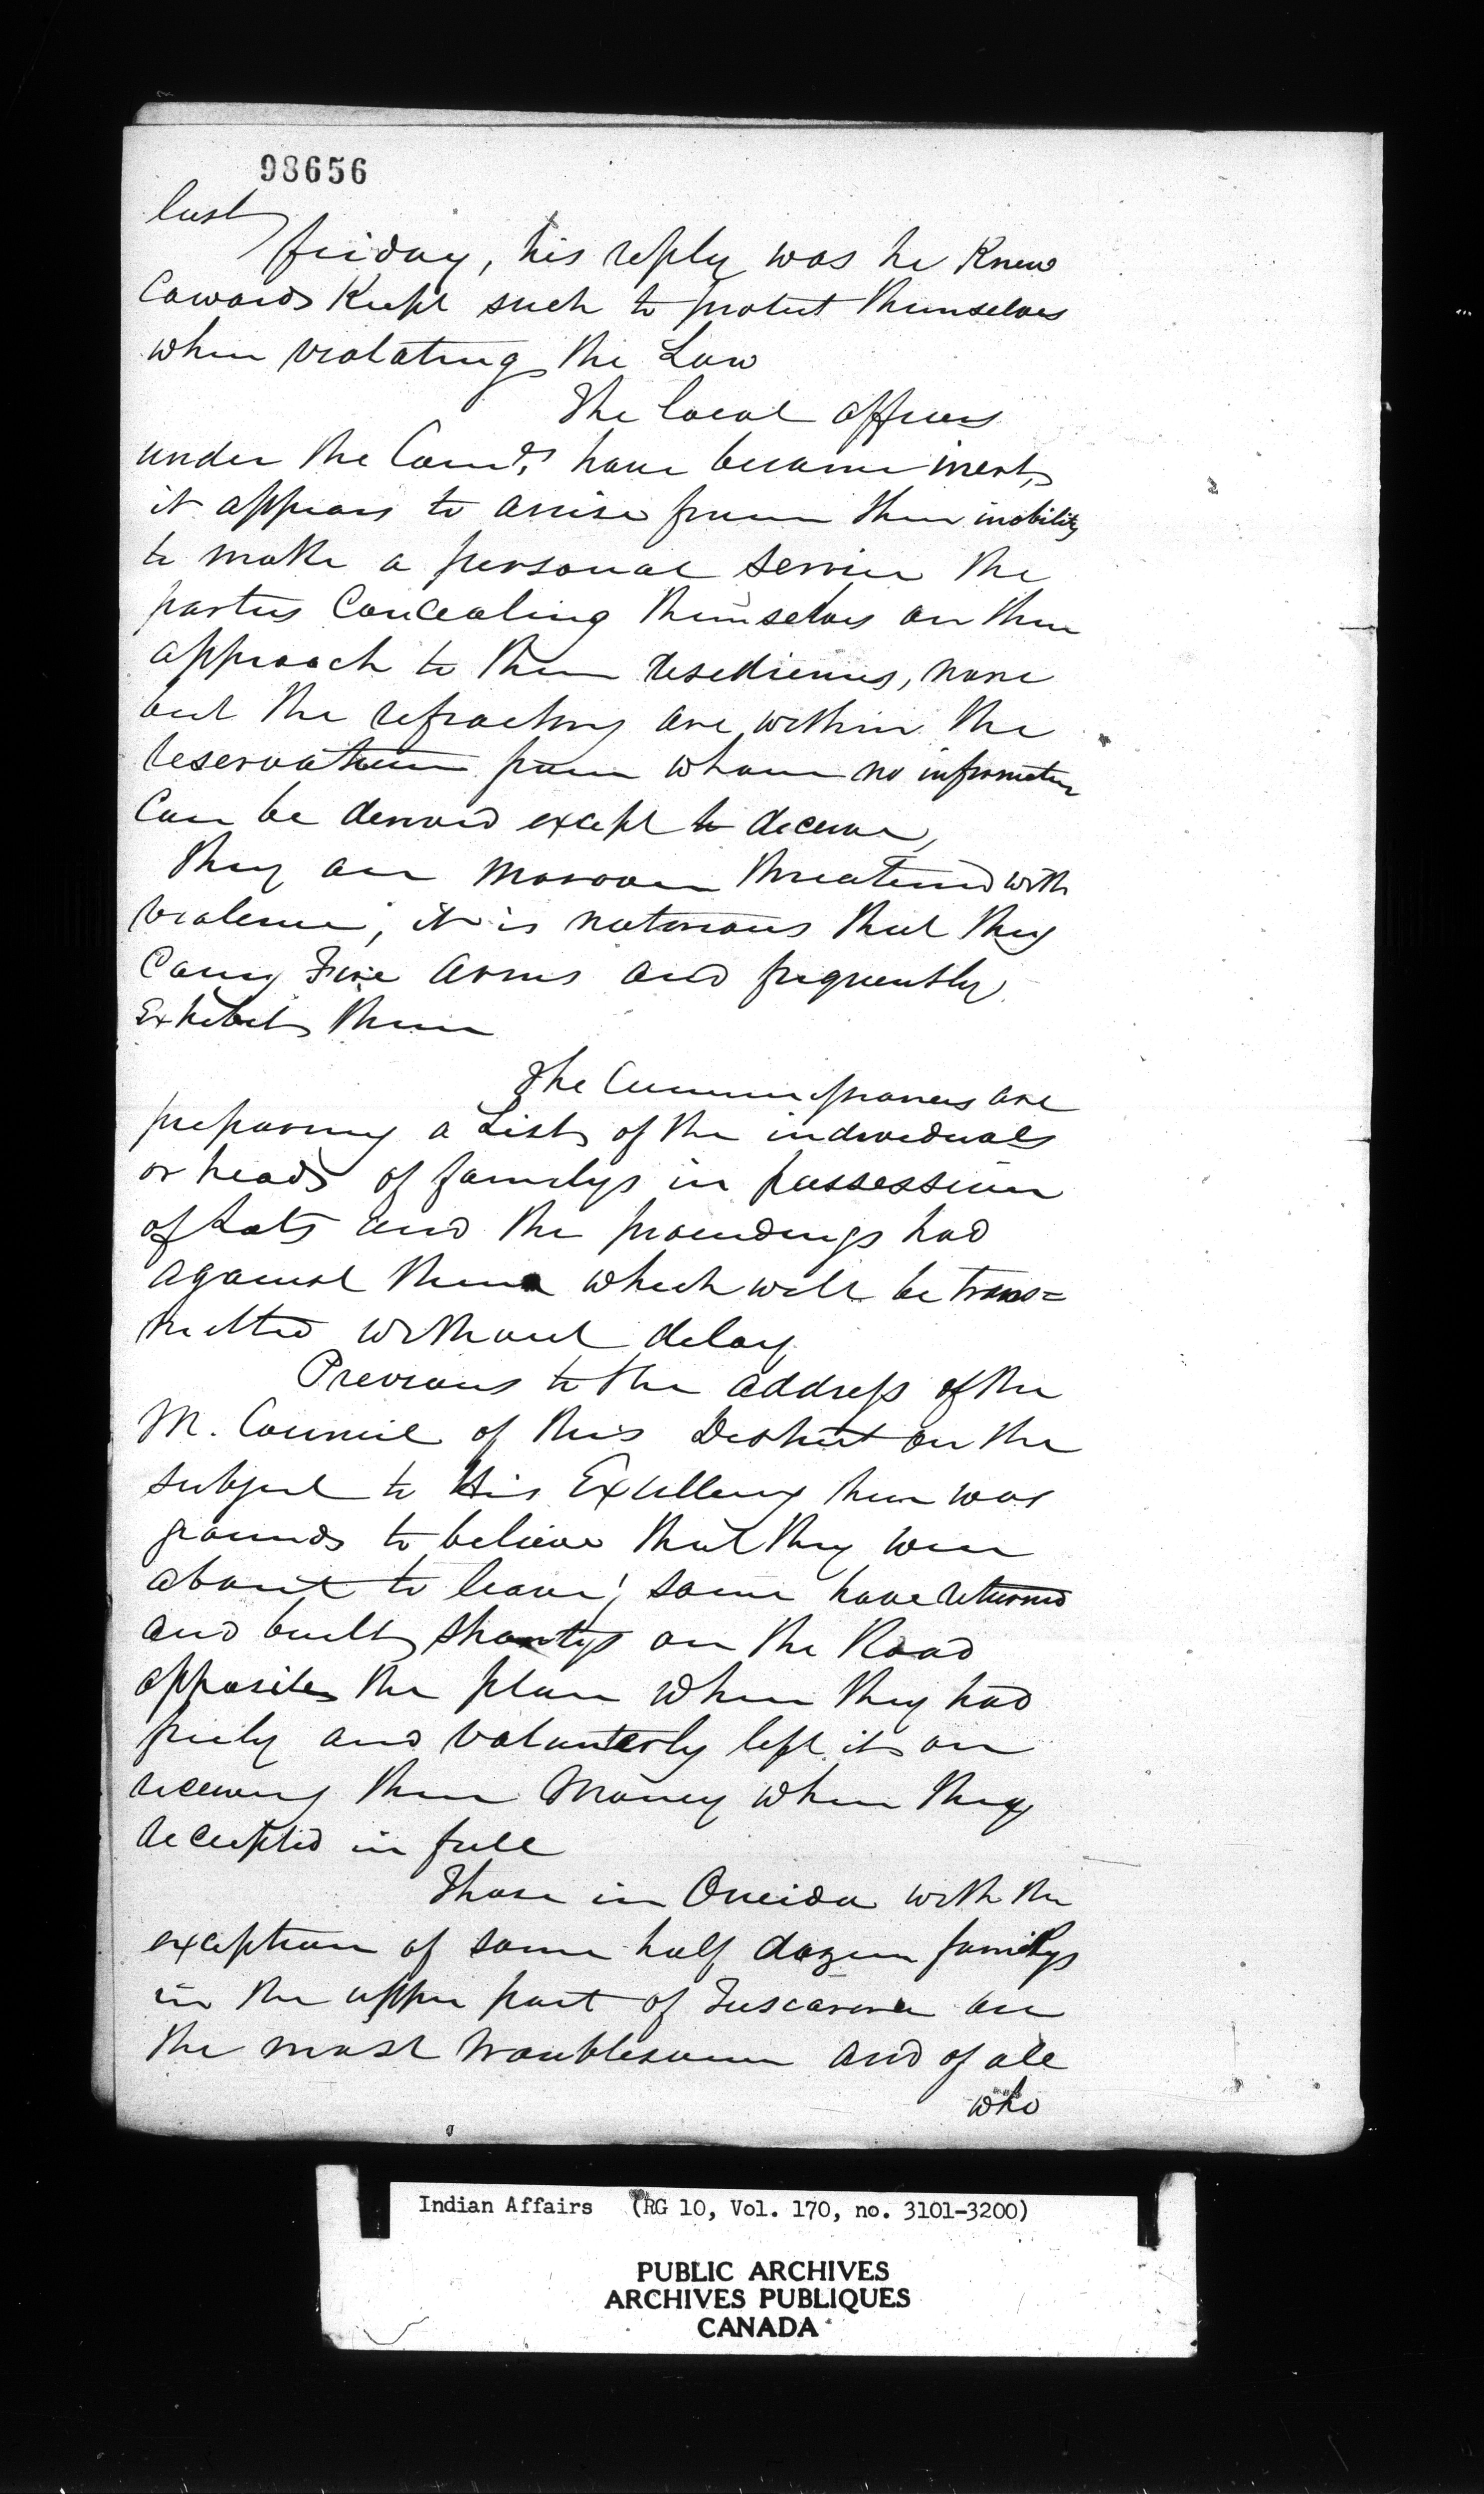 98656
last
friday, his reply was he Knew
Cowards Kept such to protect themselves
when violating the Law
The local officers
under the Com.rs have become inert,
it appears to arise from their inability
to make a personal service the
partys Concealing themselves on their
approach to their residiences, none
but the refractory are within the
reservation from whom no information
Can be derived except to deceive,
they are moreover threatened with
violence, it is notorious that they
Carry Fire arms and frequently
Exhibit them
The Commissioners are
preparing a List of the individuals
or heads of familys in possession
of Lots and the proceedings had
against them which will be trans=
mitted without delay
Previous to the address of the
M. Council of this District on the
subject to His Excellency there was
grounds to believe that they were
about to leave; some have returned
and built shantys on the Road
opposite the place where they had
freely and voluntarly left it on
receiving their Money when they
accepted in full
Those in Oneida with the
exception of some half dozen familys
in the upper part of Tuscarora are
the most troublesome and of all
who
Indian Affairs (RG 10, Vol. 170, no. 3101-3200)
PUBLIC ARCHIVES
ARCHIVES PUBLIQUES
CANADA